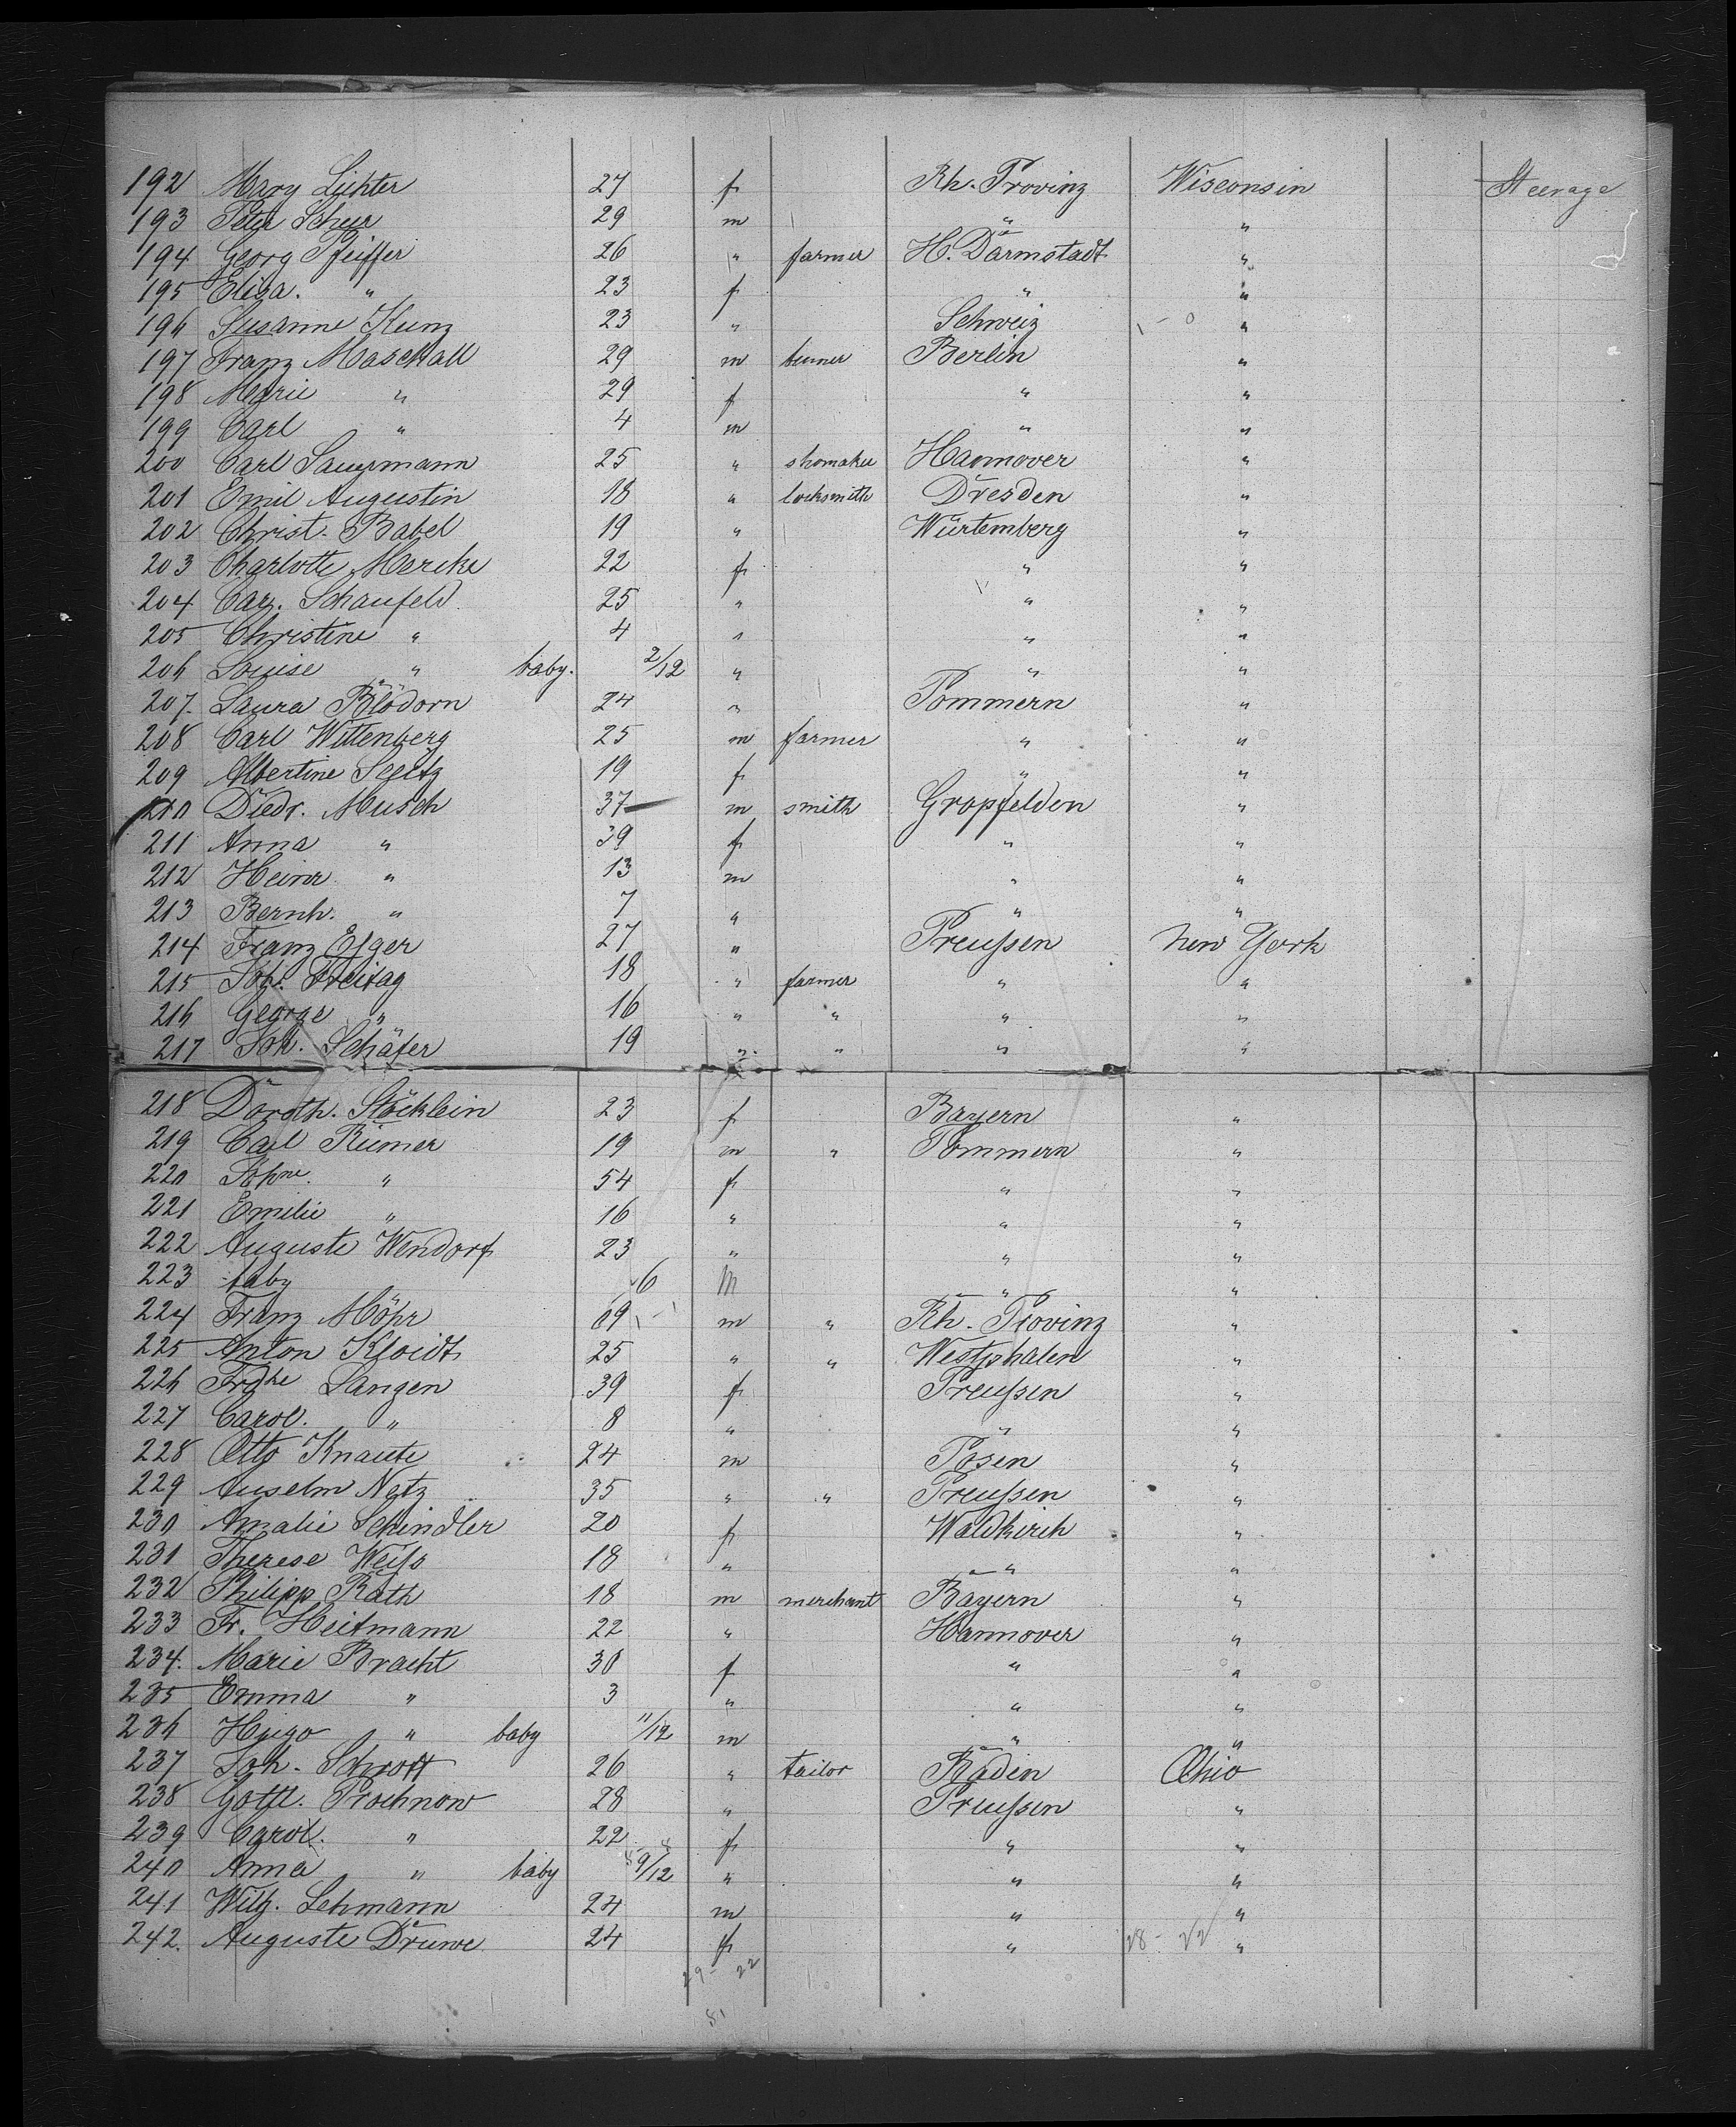 192 Mary Lichter 27 f Rh. Provinz Wisconsin Steerage
193 Peter Scheer 29 m " "
194 Georg Pfeiffer 26 " farmer H. Darmstadt "
195 Elisa. " 23 f " "
196 Susanne Kunz 23 " Schweiz "
197 Franz Maschall 29 m turner Berlin "
198 Marie " 29 f " "
199 Carl " 4 m " "
200 Carl 25 " shomaker Hannover "
201 Emil Augustin 18 " locksmith Dresden "
202 Christ. Babel 19 " Würtemberg "
203 Charlotte Mercke 22 f " "
204 Car. Schaufeld 25 " " "
205 Christine " 4 " " "
206 Louise " baby. 2/12 " " "
207. Laura Blödorn 24 " Pommern "
208 Carl Wittenberg 25 m farmer " "
209 Albertine Seeltz 19 f " "
210 Diedr. Musch 37 m smith Gropfelden "
211 Anna " 39 f " "
212 Heinr " 13 m " "
213 Bernh. " 7 " " "
214 Franz Efger 27 " Preußen New York
215 Joh. Freitag 18 " farmer " "
216 George " 16 " " " "
217 Joh. Schäfer 19 " " " "
218 Doroth. Stöcklein 23 f Bayern "
219 Carl Rümer 19 m " Pommern "
220 Johne. " 54 f " "
221 Emilie " 16 " " "
222 Auguste Wendorf 23 " " "
223 baby 6 m " "
224 Franz Möhr 19 m " Rh. Provinz "
225 Anton Kloidt 25 " " Westphalen "
226 Frdke Langen 39 f Preußen "
227 Carol. " 8 " " "
228 Otto Knaute 24 m Posen "
229 Anselm Netz 35 " " Preußen "
230 Amalie Schindler 20 f Waldkirch "
231 Therese Weiß 18 " " "
232 Philipp Rath 18 m merchant Bayern "
233 Fr. Heitmann 22 " Hannover "
234. Marie Bracht 30 f " "
235 Emma " 3 " " "
236 Hugo " baby 11/12 m " "
237 Joh. Schrott 26 " tailor Baden Ohio
238 Gottl. Prochnow 28 " Preußen "
239 Carol. " 22 f " "
240 Anna " baby 9/12 " " "
241 Wilh. Lehmann 24 m " "
242. Auguste Druwe 24 f " 28 - 22 "
29 - 22